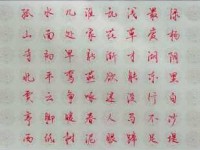 孤山寺北贾亭西
水面初平云脚低
几处早莺争暖树
谁家新燕啄春泥
乱花渐欲迷人眼
浅草才能没马蹄
最爱湖东行不足
绿杨阴里白沙堤